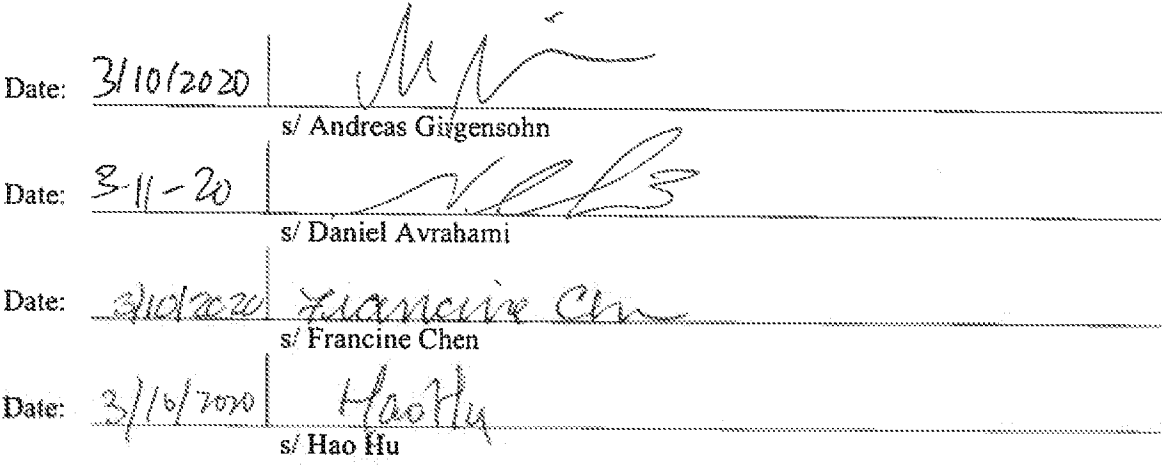 Date: 3/10/2020
s/ Andreas Girgensohn
Date: 3-11-20
s/ Daniel Avrahami
Date: 3/10/2020 Francine Chen
s/ Francine Chen
Date: 3/10/2020 Hao Hu
s/ Hao Hu